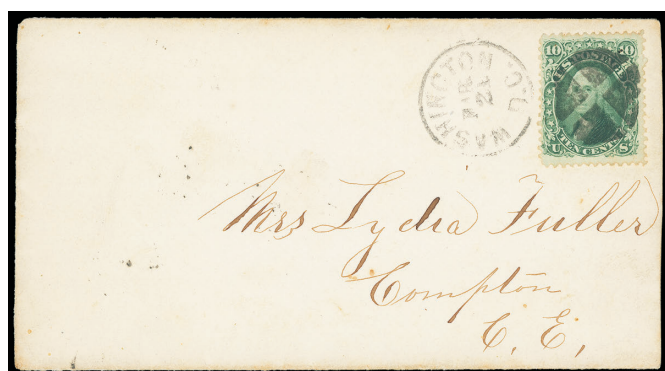 WASHINGTON D.C.
10 10
U.S. POSTAGE
TEN CENTS
U S
Mrs Lydia Fuller
Compton
C. E.